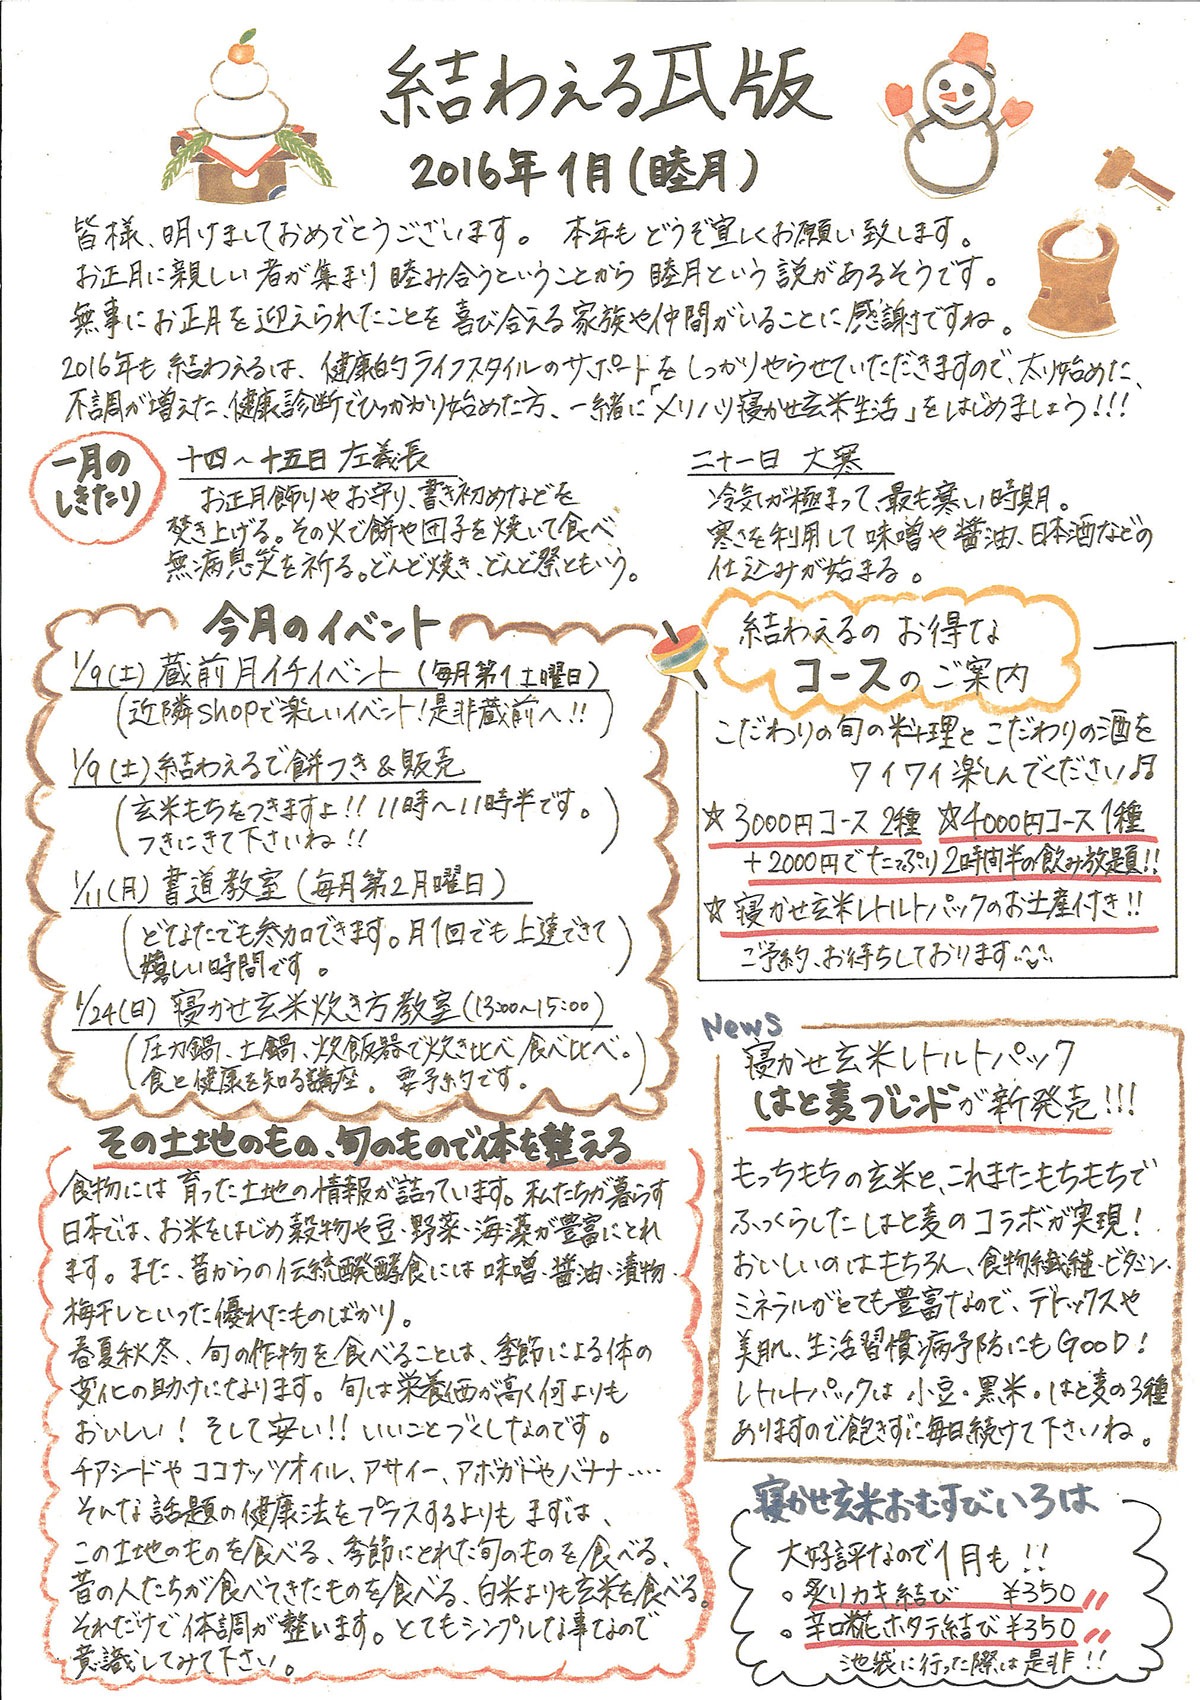 結わえる瓦版
2016年1月(睦月)
皆様、明けましておめでとうございます。 本年もどうぞ宜しくお願い致します。
お正月に親しい者が集まり睦み合うということから睦月という説があるそうです。
無事にお正月を迎えられたことを喜び合える家族や仲間がいることに感謝ですね。
2016年も結わえるは、健康的ライフスタイルのサポートをしっかりやらせていただきますので、太り始めた、
不調が増えた、健康診断でひっかかり始めた方、一緒に「メリハリ寝かせ玄米生活」をはじめましょう!!!
一月の
しきたり
十四〜十五日 左義長
お正月飾りやお守り、書き初めなどを
焚き上げる。その火で餅や団子を焼いて食べ
無病息災を祈る。どんど焼き、どんど祭ともいう。
二十一日 大寒
冷気が極まって、最も寒い時期。
寒さを利用して味噌や醤油、日本酒などの
仕込みが始まる。
今月のイベント
1/9(土) 蔵前月イチイベント (毎月第1土曜日)
(近隣shopで楽しいイベント!是非蔵前へ!!)
1/9(土) 結わえるで餅つき&販売
(玄米もちをつきますよ!! 11時〜11時半です。
つきにきて下さいね!!)
1/11(月) 書道教室 (毎月第2月曜日)
(どなたでも参加できます。月1回でも上達できて
嬉しい時間です。)
1/24(日) 寝かせ玄米炊き方教室(13:00〜15:00)
(圧力鍋、土鍋、炊飯器で炊き比べ食べ比べ。
食と健康を知る講座。要予約です。)
結わえるのお得な
コースのご案内
こだわりの旬の料理とこだわりの酒を
ワイワイ楽しんでください♪♬
☆3000円コース2種 ☆4000円コース1種
+2000円でたっぷり2時間半の飲み放題!!
☆寝かせ玄米レトルトパックのお土産付き!!
ご予約、お待ちしております
News
寝かせ玄米レトルトパック
はと麦ブレンドが新発売!!!
もっちもちの玄米と、これまたもちもちで
ふっくらしたはと麦のコラボが実現!
おいしいのはもちろん、食物繊維・ビタミン・
ミネラルがとても豊富なので、デトックスや
美肌、生活習慣病予防にもGOOD!
レトルトパックは小豆・黒米・はと麦の3種
ありますので飽きずに毎日続けて下さいね。
その土地のもの、旬のもので体を整える
食物には育った土地の情報が詰っています。私たちが暮らす
日本では、お米をはじめ穀物や豆・野菜・海藻が豊富にとれ
ます。また、昔からの伝統醗酵食には味噌・醤油・漬物・
梅干しといった優れたものばかり。
春夏秋冬、旬の作物を食べることは、季節による体の
変化の助けになります。旬は栄養価が高く何よりも
おいしい!そして安い!!いいことづくしなのです。
チアシードやココナッツオイル、アサイー、アボガドやバナナ‥‥
そんな話題の健康法をプラスするよりもまずは、
この土地のものを食べる、季節にとれた旬のものを食べる、
昔の人たちが食べてきたものを食べる、白米よりも玄米を食べる。
それだけで体調が整います。とてもシンプルな事なので
意識してみて下さい。
寝かせ玄米おむすびいろは
大好評なので1月も!!
。炙りカキ結び ¥350
。辛口糀ホタテ結び¥350
池袋に行った際は是非!!